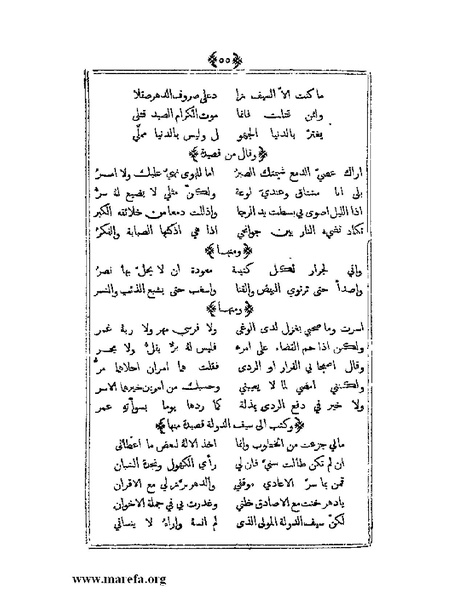 ﴿٥٥﴾
ما كنت الّا السيف زا دعلى صروف الدهر صقلا
ولئن قتلت فانما موت الكرام الصيد قتلى
يغترّ بالدنيا الجهو ل وليس بالدنيا مملّى
﴿وقال من قصيدة﴾
اراك عصيّ الدمع شيمتك الصبرُ اما للهوى نهيٌ عليك ولا امرُ
بلى انا مشتاق وعندي لوعة ولكنّ مثلي لا يضيع له سرُّ
اذا الليل اضوى بي بسطت يد الرجا واذللت دمعا من خلائقه الكبر
تكاد تضيء النار بين جوانحي اذا هي اذكتها الصبابة والفكرُ
﴿ومنها﴾
واني لجرار لكل كتيبة معودة ان لا يخلّ بها نصرُ
واصدأ حتى ترتوي البيض والقنا واسغب حتى يشبع الذئب والنسر
﴿ومنها﴾
اسرت وما صحبي بعزل لدى الوغى ولا فرسي مهر ولا ربه غمر
ولكن اذا حم القضاء على امرء فليس له برّ يقيه ولا بحر
وقال اصيحابي الفرار او الردى فقلت هما امران احلاهما مرّ
ولكنني امضي لما لا يعيبني وحسبك من امرين خيرهما الاسر
ولا خير في دفع الردى بمذلة كما ردها يوما بسوأته عمر
﴿وكتب الى سيف الدولة قصيدة منها﴾
مالي جزعت من الخطوب وانما اخذ الاله لبعض ما اعطاني
ان لم تكن طالت سنيّ فان لي رأي الكهول ونجدة الشبان
قمن بما سرّ الاعادي موقفي والدهر يبرز لي مع الاقران
يادهر خنت مع الاصادق خلتي وغدرت بي في جملة الاخوان
لكنّ سيف الدولة المولى الذي لم انسه واراه لا ينساني
www.marefa.org